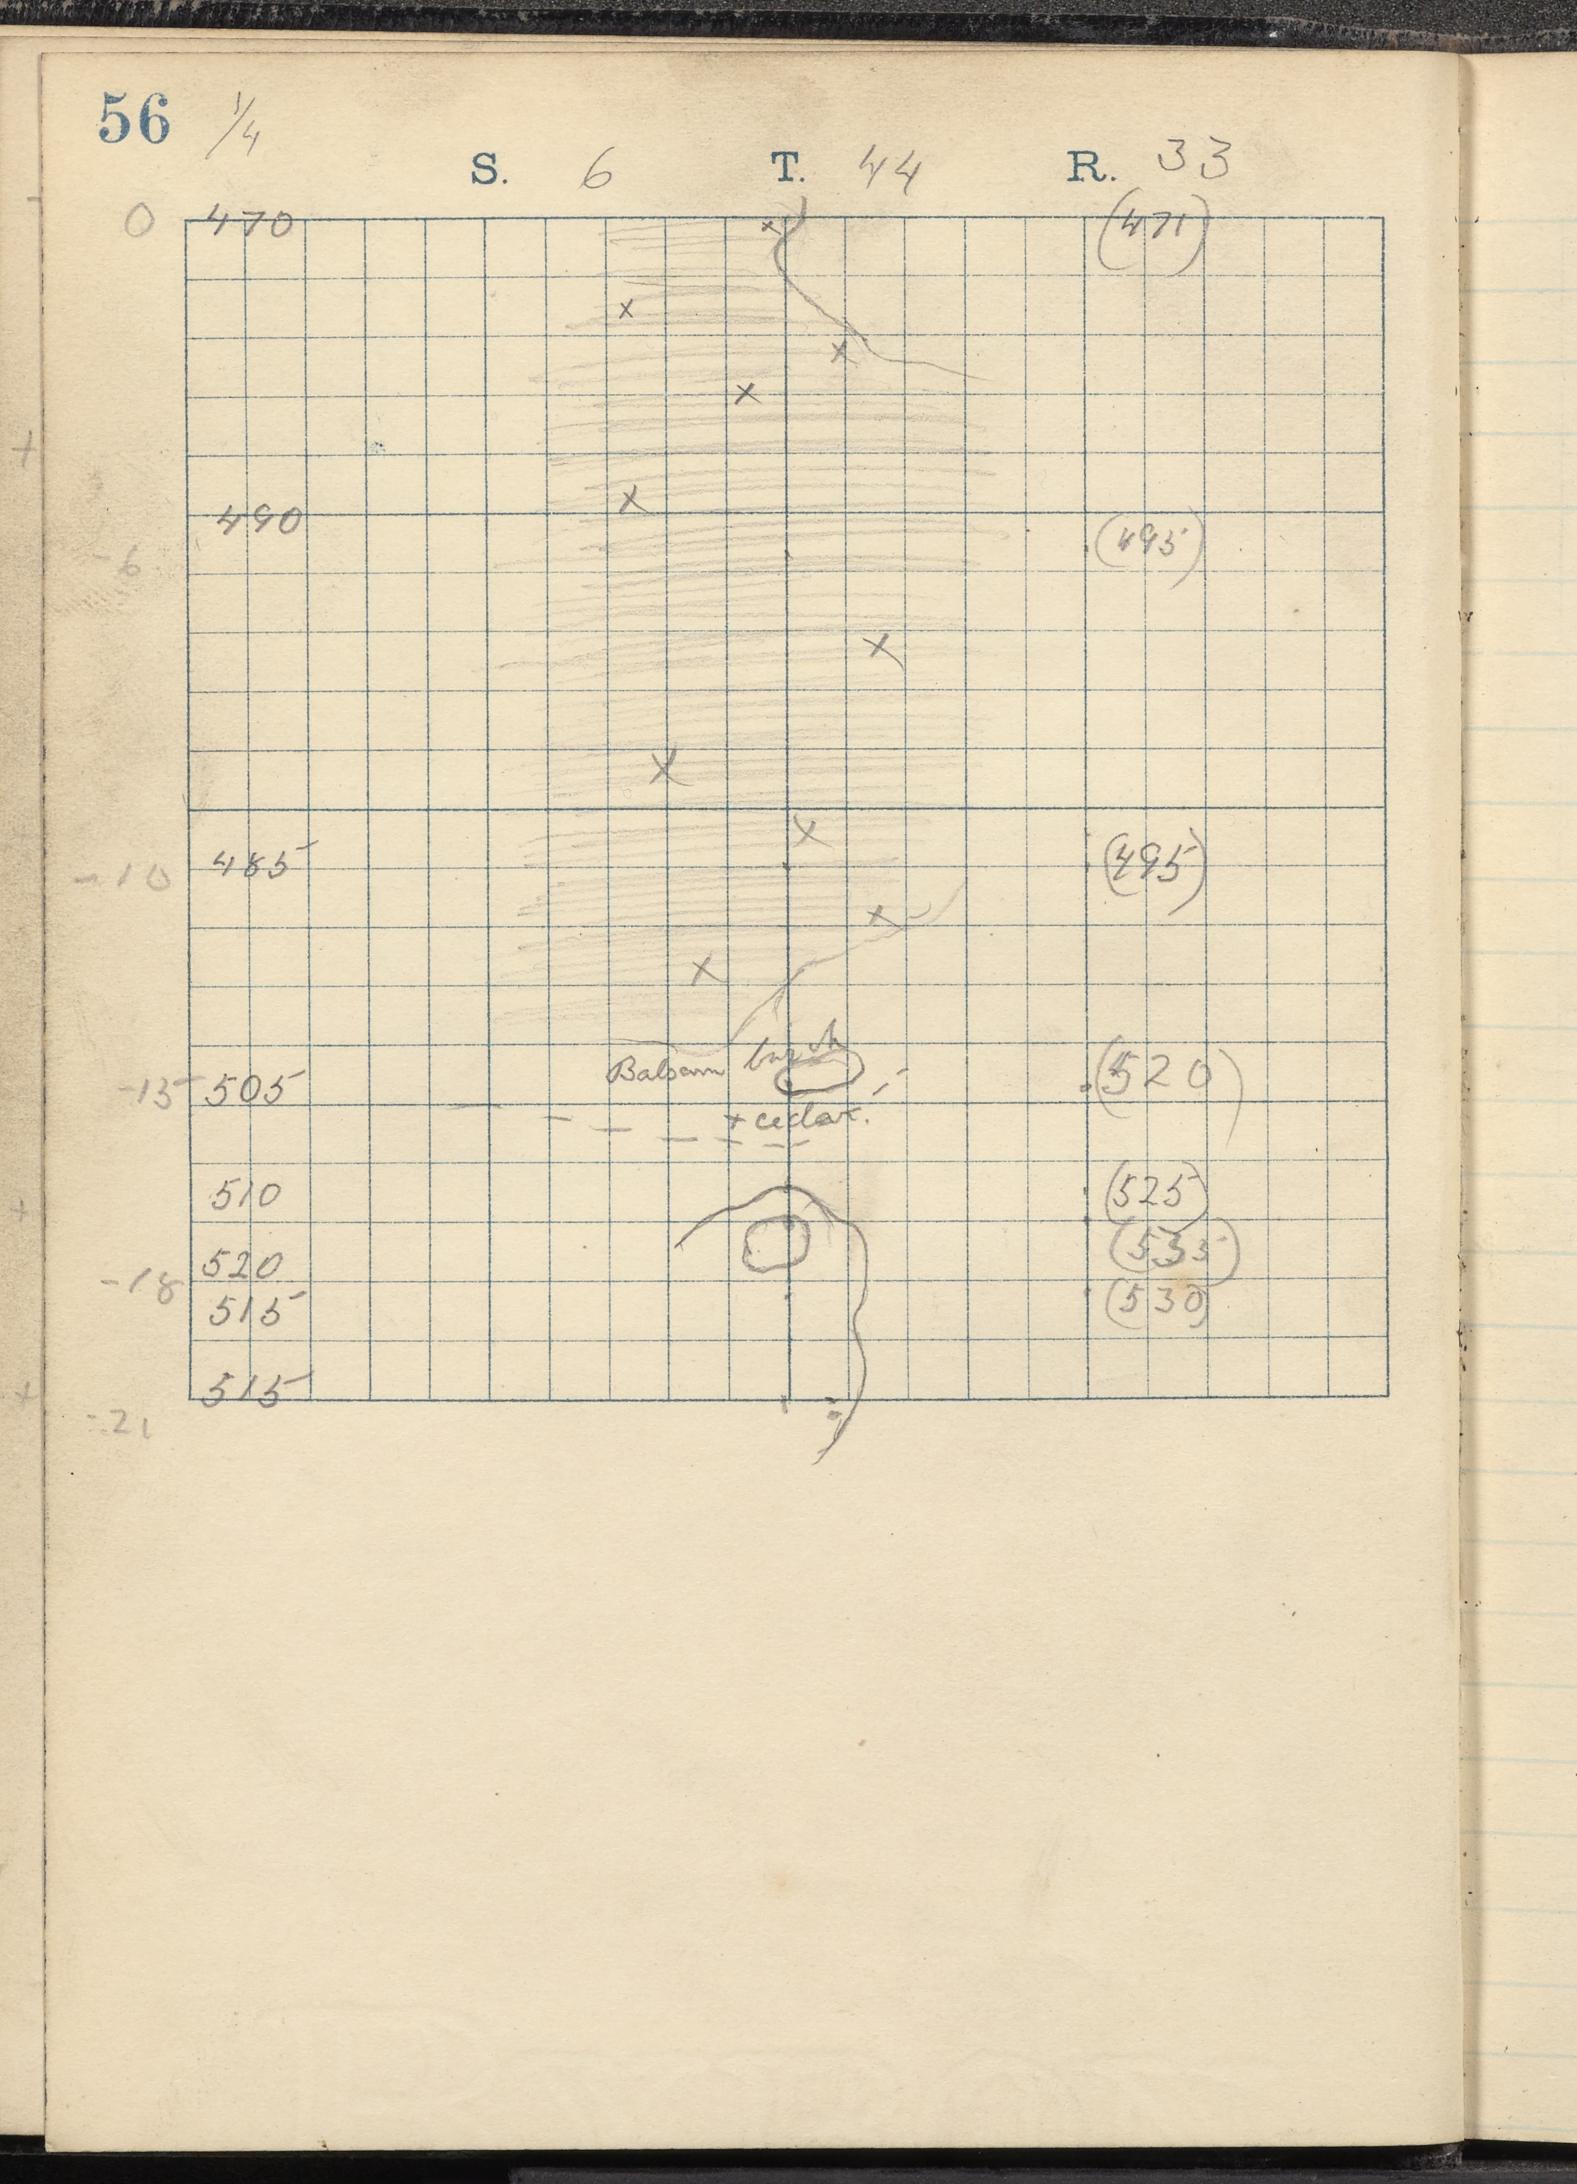 56 1/4
S. 6 T. 44 R. 33
0 470 (471)
490 (495)
-6
-10 485 (495)
Balsam birch
-15 505 (520)
+ cedar.
510 (525)
520 (535)
-18
515 (530)
515
-21